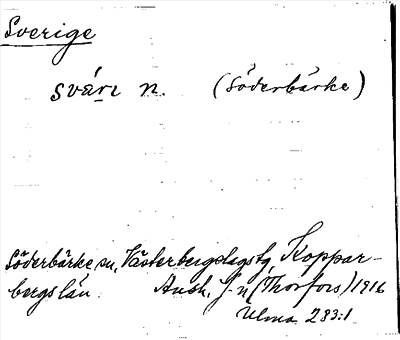 Sverige
svárı n. (Söderbärke)
Söderbärke sn, Västerbergslags tg Koppar-
bergs län. Ansh. J. n (Thorfors) 1916
Ulma 283:1